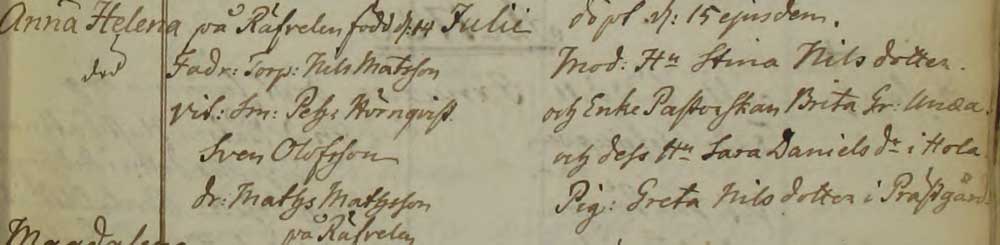 Anna Helena på Räfvelen född d: 14 Julii döpt d: 15 ejusdem.
död Fadr: Torp: Nils Matsson Mod: Hu Stina Nils dotter.
vit: Sm: Pehr Hörnqvist och Enke Pastorskan Brita Gr: Unæa.
Sven Olofsson och dess Hu Sara Daniels dr i Hola
dr: Mathys Mathysson Pig: Greta Nils dotter i Prästgård:
på Räfvelen
Magdalena